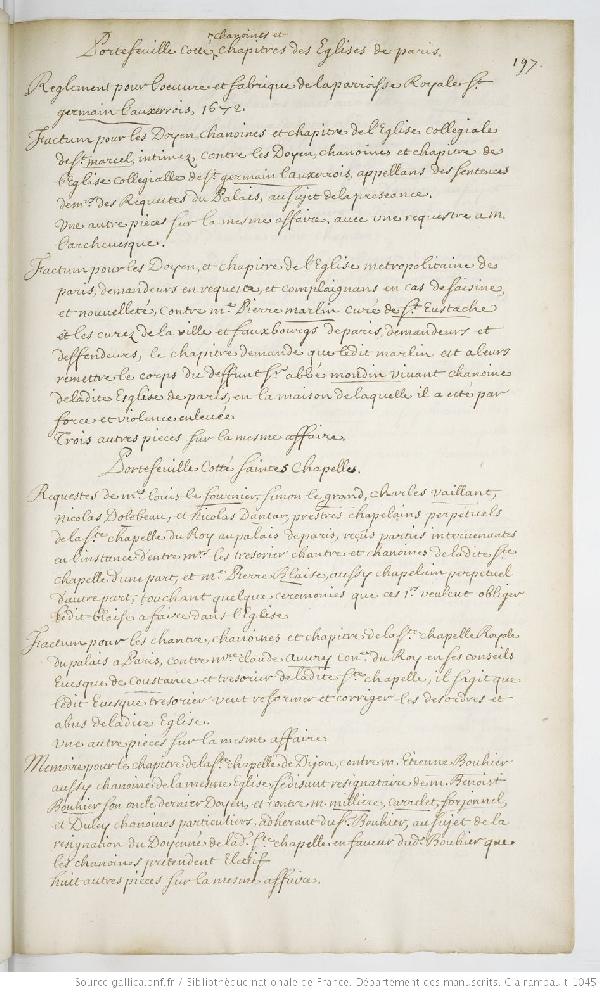 chanoines et
Portefeuille Cotté chapitres des Eglises de paris.
197.
Reglement pour loeuvre et fabrique de la parroisse Royale St.
germain lauxerrois, 1672.
Factum pour les Doyen chanoines et chapitre de l'Eglise collegiale
de St. marcel, intimez, contre les Doyen, chanoines et chapitre de
l'Eglise collegialle de St. germain lauxerrois, appellans des sentences
de mrs. des Requestes du Palais, au sujet de la preseance.
Une autre pieces sur la mesme affaire, avec une requestre a m.
l'archevesque.
Factum pour les Doyen, et chapitre de l'Eglise metropolitaine de
paris, demandeurs en requeste, et complaignans en cas de saisine,
et nouvelleté, contre mr. Pierre marlin curé de St. Eustache
et les curez de la ville et fauxbourgs de paris, demandeurs et
deffendeurs, le chapitre demande que ledit marlin est a leurs
remettre le corps du deffunt Sr. abbé moudin vivant chanoine
de ladite Esglise de paris, en la maison de laquelle il a esté par
force et violence enlevée
Trois autres pieces sur la mesme affaire.
Portefeuille Cotté saintes Chapelles.
Requestes de mrs. Louis le fournier, simon le grand, charles vaillant,
Nicolas Dolebeau, et Nicolas Dantar, prestres chapelains perpetuels
de la Ste. chapelle du Roy au palais de paris, reçus parties intervenantes
en l'instance d'entre mrs. les tresorier chantre et chanoines de ladite Ste
chapelle d'une part, et mr. Pierre Blaise, aussy chapelain perpetuel
d'autre part, touchant quelque ceremonies que ces 1rs. veulent obliger
ledit blaise a faire dans l'eglise
Factum pour les chantre, chanoines et chapitre de la Ste. chapelle Royale
du palais a Paris, contre mre. claude Auvry conr. du Roy en ses conseils
Evesque de Coustance et tresorier de ladite Ste. chapelle, il s'agit que
ledit Evesque tresorier veut reformer et corriger les desordres et
abus de ladite Eglise.
Une autre pieces sur la mesme affaire.
Memoire pour le chapitre de la Ste. chapelle de Dijon, contre m. Etienne Bouhier
aussy chanoine de la mesme Eglise, se disant resignataire de m. Benoist
Bouhier son oncle dernier Doyen, et contre m. milliere, carrelet,
et Duley chanoines particuliers, adherant du Sr. Bouhier, au sujet de la
resignation du Doyenné de lad. Ste chapelle en faveur dud. Bouhier que
les chanoines pretendent Electif
huit autres pieces sur la mesme affaire.
Source gallica.bnf.fr / Bibliothèque nationale de France. Département des manuscrits. Clairambault 1045